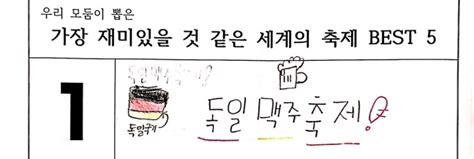 우리 모둠이 뽑은
가장 재미있을 것 같은 세계의 축제 BEST 5
1
독일 맥주 축제!
독일국기